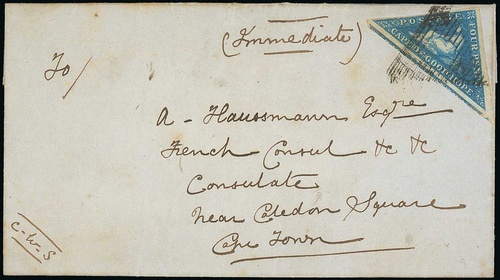 (Immediate)
POSTAGE
FOUR PENCE
CAPE OF GOOD HOPE
To /
A - Haussmann Esqre
French Consul &c &c
Consulate
near Caledon Square
Cape Town
C-W-S